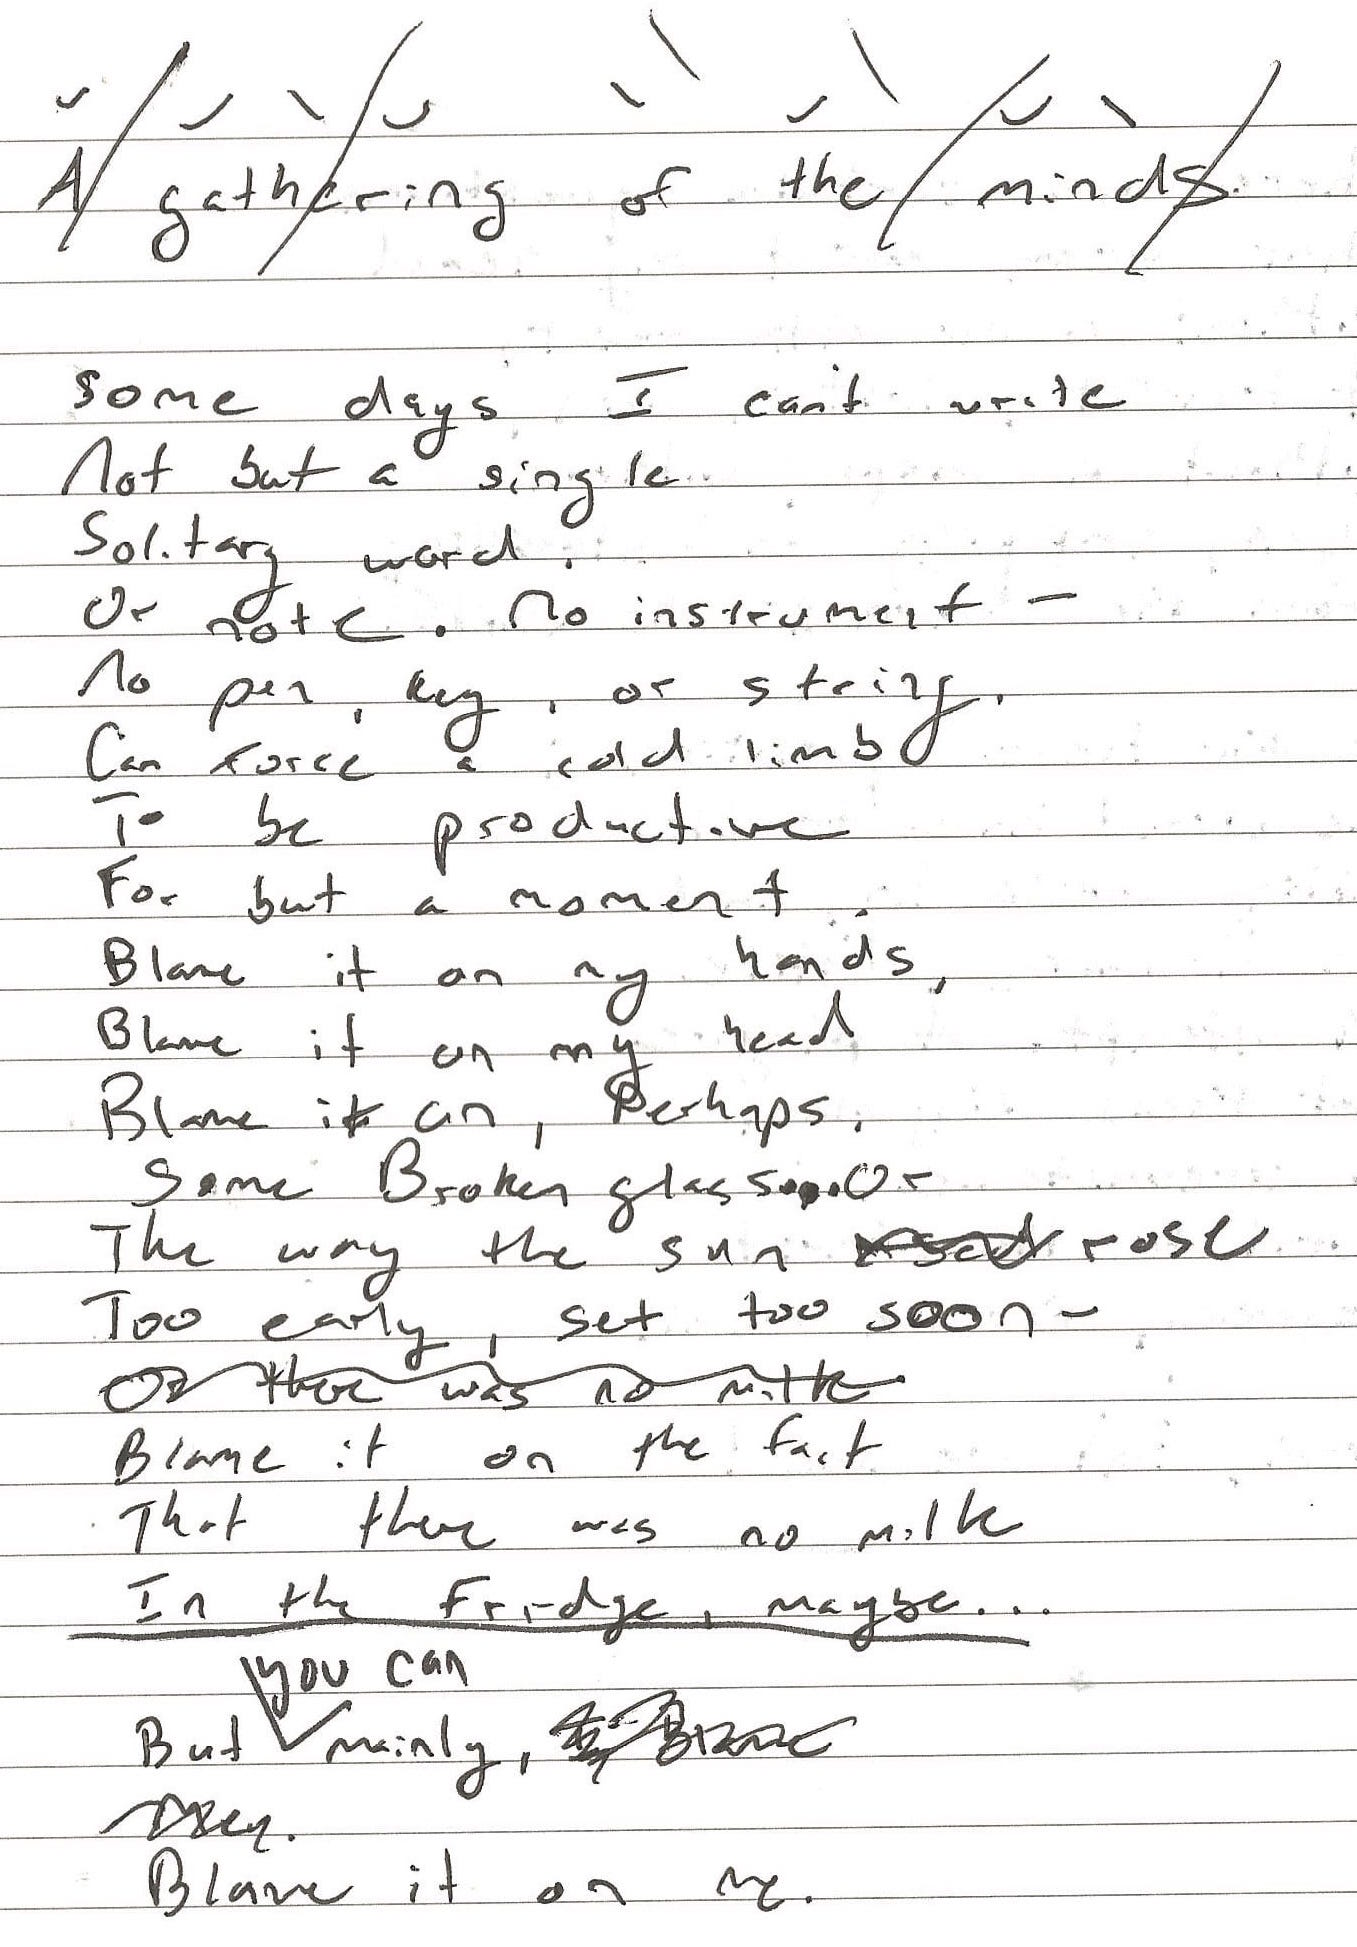 A gathering of the minds.
Some days I can't write
Not but a single
Solitary word.
Or note. No instrument -
No pen, key, or string,
Can force a cold limb
To be productive
For but a moment.
Blame it on my hands,
Blame it on my head
Blame it on, Perhaps,
Some Broken glass... Or
The way the sun rose
Too early, set too soon -
Or there was no milk
Blame it on the fact
That there was no milk
In the Fridge, maybe...
you can
But mainly, Blame
Blame it on me.